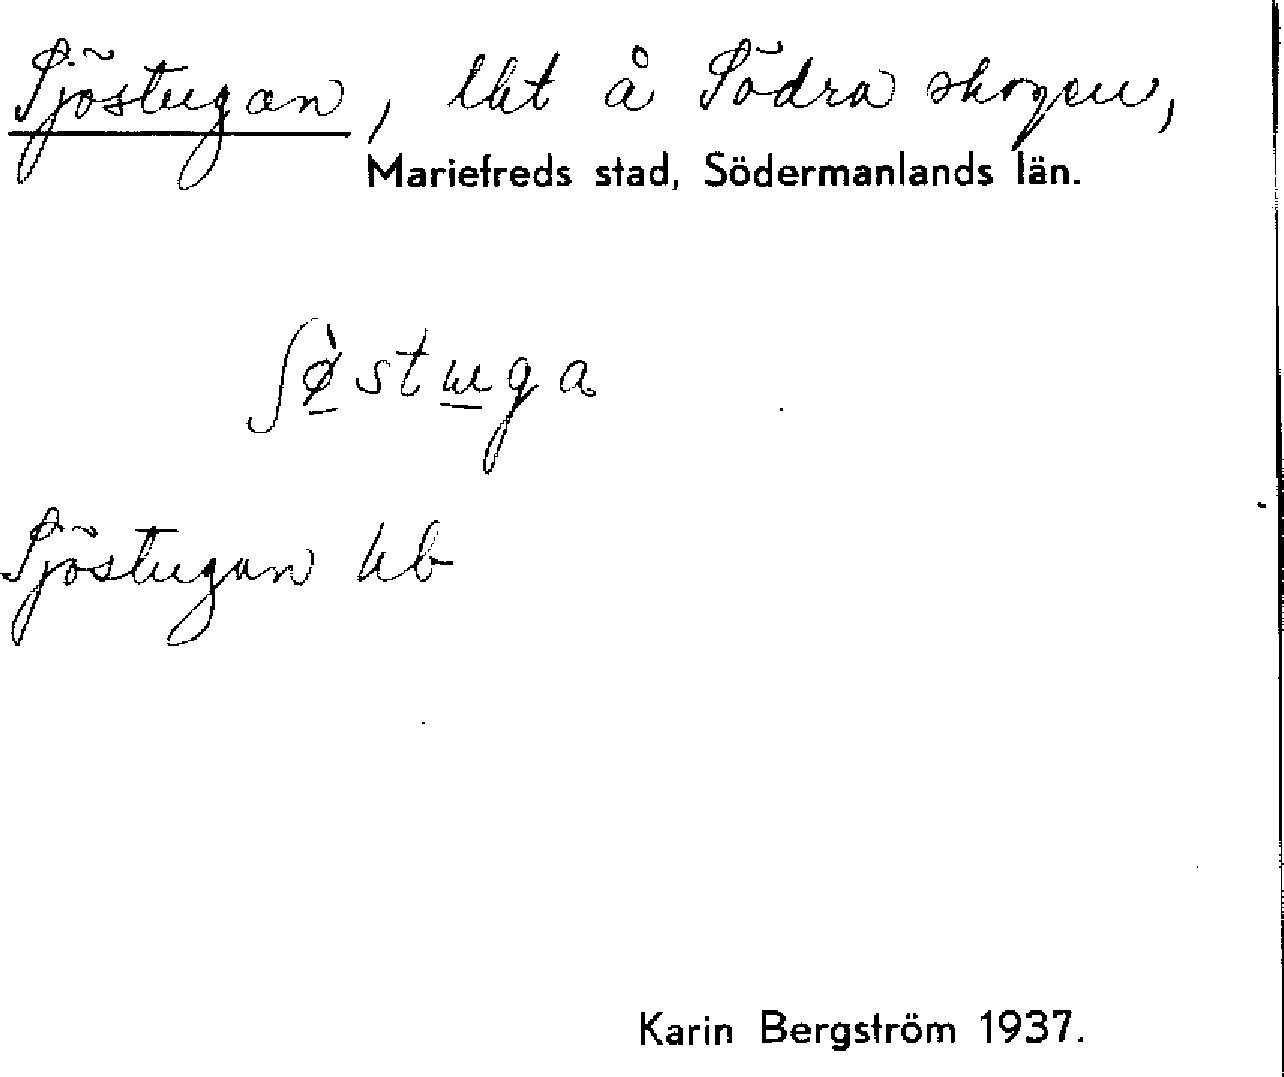 Sjöstugan, lht å Södra skogen,
Mariefreds stad, Södermanlands län.
ʃø̀stɯga
Sjöstugan hb
Karin Bergström 1937.